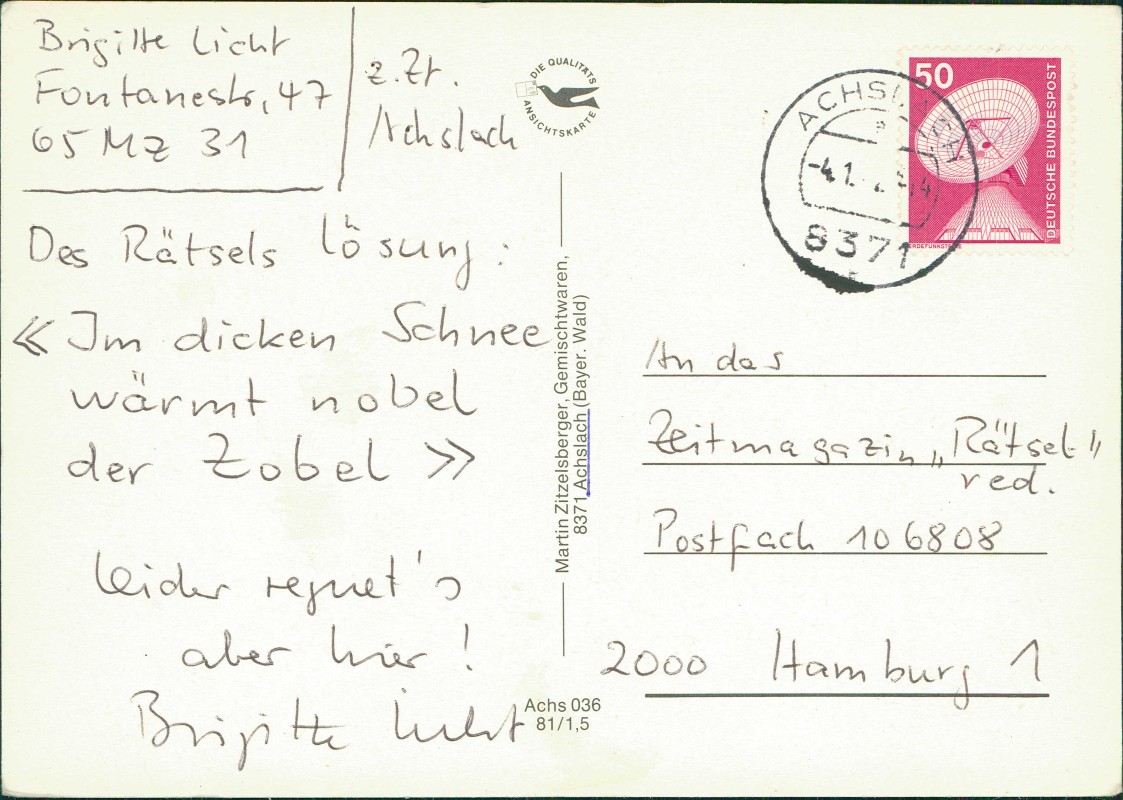 Brigitte Licht
Fontanestr, 47
65 MZ 31
z.Zt.
Achslach
Des Rätsels Lösung:
« Im dicken Schnee
wärmt nobel
der Zobel »
Leider regnet's
aber hier!
Brigitte Licht
DIE QUALITÄTS
ANSICHTSKARTE
Martin Zitzelsberger, Gemischtwaren,
8371 Achslach (Bayer. Wald)
Achs 036
81/1,5
50
DEUTSCHE BUNDESPOST
ACHSLACH
8371
An das
Zeitmagazin „Rätsel"
red.
Postfach 106808
2000 Hamburg 1